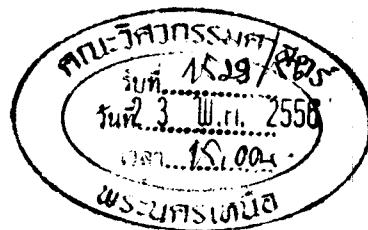 คณะวิศวกรรมศาสตร์
รับที่ 1529
วันที่ 2 3 พ.ค. 2556
เวลา 15.00น.
พระนครเหนือ